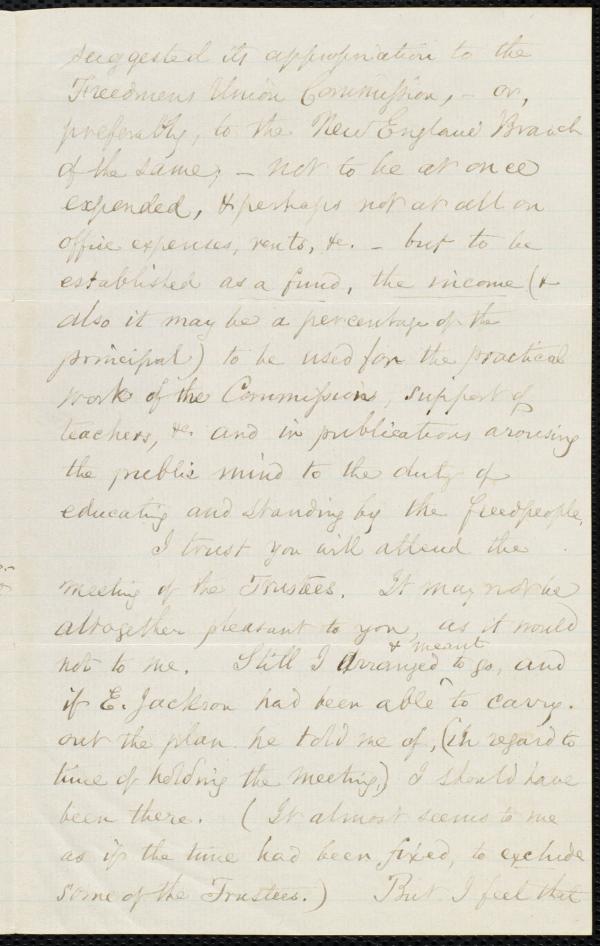 suggested its appropriation to the
Freedmens Union Commission, - or,
preferably, to the New England Branch
of the same; - not to be at once
expended, & perhaps not at all on
office expenses, rents, &c. - but to be
established as a fund, the income (&
also it may be a percentage of the
principal) to be used for the practical
work of the Commission, support of
teachers, &c. and in publications arousing
the public mind to the duty of
educating and standing by the freedpeople.
I trust you will attend the
meeting of the Trustees. It may not be
altogether pleasant to you, as it would
& meant
not to me. Still I arranged ^ to go, and
if E. Jackson had been able to carry
out the plan he told me of, (in regard to
time of holding the meeting,) I should have
been there. (It almost seems to me
as if the time had been fixed, to exclude
some of the Trustees.) But I feel that